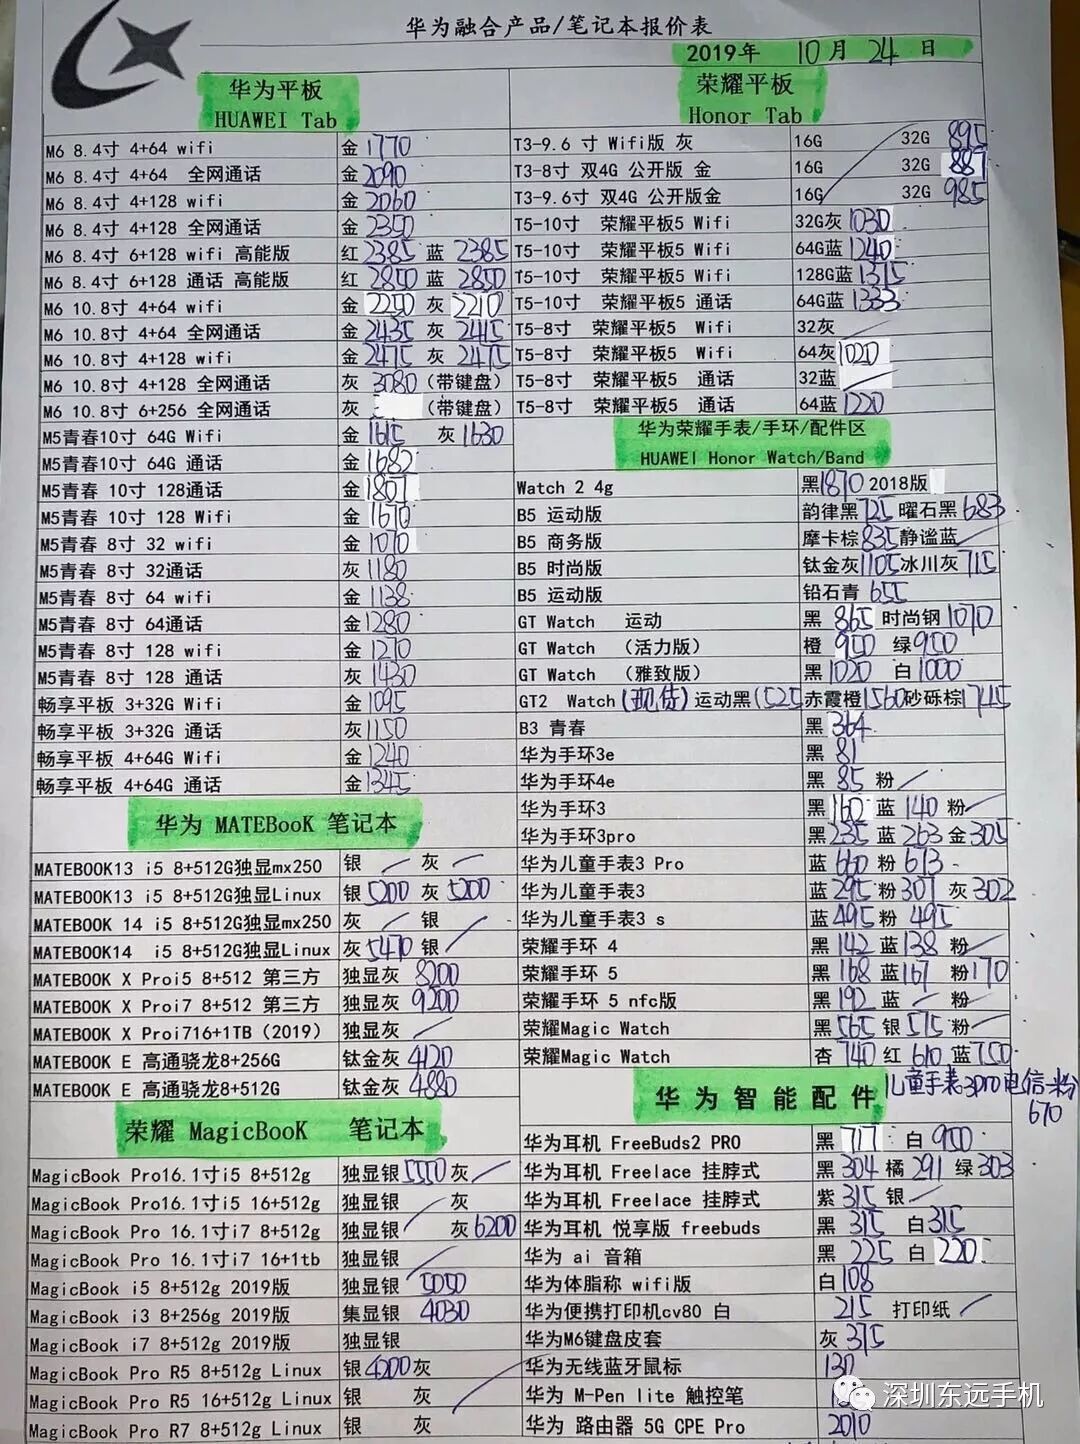 华为融合产品/笔记本报价表
2019年 10月 24 日
华为平板
HUAWEI Tab
M6 8.4寸 4+64 wifi 金 1770
M6 8.4寸 4+64 全网通话 金 2090
M6 8.4寸 4+128 wifi 金 2060
M6 8.4寸 4+128 全网通话 金 2350
M6 8.4寸 6+128 wifi 高能版 红 2385 蓝 2385
M6 8.4寸 6+128 通话 高能版 红 2850 蓝 2850
M6 10.8寸 4+64 wifi 金 2250 灰 2210
M6 10.8寸 4+64 全网通话 金 2435 灰 2415
M6 10.8寸 4+128 wifi 金 2475 灰 2475
M6 10.8寸 4+128 全网通话 灰 3080 (带键盘)
M6 10.8寸 6+256 全网通话 灰 (带键盘)
M5青春10寸 64G Wifi 金 1615 灰 1630
M5青春10寸 64G 通话 金 1682
M5青春 10寸 128通话 金 1807
M5青春 10寸 128 Wifi 金 1670
M5青春 8寸 32 wifi 金 1070
M5青春 8寸 32通话 灰 1180
M5青春 8寸 64 wifi 金 1138
M5青春 8寸 64通话 金 1280
M5青春 8寸 128 wifi 金 1270
M5青春 8寸 128 通话 灰 1430
畅享平板 3+32G Wifi 金 1095
畅享平板 3+32G 通话 灰 1150
畅享平板 4+64G Wifi 金 1240
畅享平板 4+64G 通话 金 1345
华为 MATEBooK 笔记本
MATEBOOK13 i5 8+512G独显mx250 银 灰
MATEBOOK13 i5 8+512G独显Linux 银 5200 灰 5200
MATEBOOK 14 i5 8+512G独显mx250 灰 银
MATEBOOK14 i5 8+512G独显Linux 灰 5470 银
MATEBOOK X Proi5 8+512 第三方 独显灰 8200
MATEBOOK X Proi7 8+512 第三方 独显灰 9200
MATEBOOK X Proi716+1TB（2019） 独显灰
MATEBOOK E 高通骁龙8+256G 钛金灰 4120
MATEBOOK E 高通骁龙8+512G 钛金灰 4880
荣耀 MagicBooK 笔记本
MagicBook Pro16.1寸i5 8+512g 独显银 5550 灰
MagicBook Pro16.1寸i5 16+512g 独显银 灰
MagicBook Pro 16.1寸i7 8+512g 独显银 灰 6200
MagicBook Pro 16.1寸i7 16+1tb 独显银
MagicBook i5 8+512g 2019版 独显银 5050
MagicBook i3 8+256g 2019版 集显银 4030
MagicBook i7 8+512g 2019版 独显银
MagicBook Pro R5 8+512g Linux 银 4200 灰
MagicBook Pro R5 16+512g Linux 银 灰
MagicBook Pro R7 8+512g Linux 银 灰
荣耀平板
Honor Tab
T3-9.6 寸 Wifi版 灰 16G 32G 895
T3-8寸 双4G 公开版 金 16G 32G 887
T3-9.6寸 双4G 公开版金 16G 32G 985
T5-10寸 荣耀平板5 Wifi 32G灰 1030
T5-10寸 荣耀平板5 Wifi 64G蓝 1240
T5-10寸 荣耀平板5 Wifi 128G蓝 1375
T5-10寸 荣耀平板5 通话 64G蓝 1333
T5-8寸 荣耀平板5 Wifi 32灰
T5-8寸 荣耀平板5 Wifi 64灰 1020
T5-8寸 荣耀平板5 通话 32蓝
T5-8寸 荣耀平板5 通话 64蓝 1220
华为荣耀手表/手环/配件区
HUAWEI Honor Watch/Band
Watch 2 4g 黑 1870 2018版
B5 运动版 韵律黑 725 曜石黑 683
B5 商务版 摩卡棕 835 静谧蓝
B5 时尚版 钛金灰 1105 冰川灰 715
B5 运动版 铅石青 655
GT Watch 运动 黑 865 时尚钢 1070
GT Watch （活力版） 橙 950 绿 950
GT Watch （雅致版） 黑 1020 白 1000
GT2 Watch (现货) 运动黑 1525 赤霞橙 1560 砂砾棕 1745
B3 青春 黑 364
华为手环3e 黑 81
华为手环4e 黑 85 粉
华为手环3 黑 160 蓝 140 粉
华为手环3pro 黑 235 蓝 263 金 305
华为儿童手表3 Pro 蓝 660 粉 673
华为儿童手表3 蓝 295 粉 307 灰 302
华为儿童手表3 s 蓝 495 粉 495
荣耀手环 4 黑 142 蓝 138 粉
荣耀手环 5 黑 168 蓝 167 粉 170
荣耀手环 5 nfc版 黑 192 蓝 粉
荣耀Magic Watch 黑 565 银 575 粉
荣耀Magic Watch 杏 740 红 610 蓝 750
儿童手表3pro电信-粉 670
华为智能配件
华为耳机 FreeBuds2 PRO 黑 717 白 950
华为耳机 Freelace 挂脖式 黑 304 橘 291 绿 303
华为耳机 Freelace 挂脖式 紫 315 银
华为耳机 悦享版 freebuds 黑 315 白 315
华为 ai 音箱 黑 225 白 220
华为体脂称 wifi版 白 108
华为便携打印机cv80 白 215 打印纸
华为M6键盘皮套 灰 375
华为无线蓝牙鼠标 130
华为 M-Pen lite 触控笔
华为 路由器 5G CPE Pro 2010
深圳东远手机